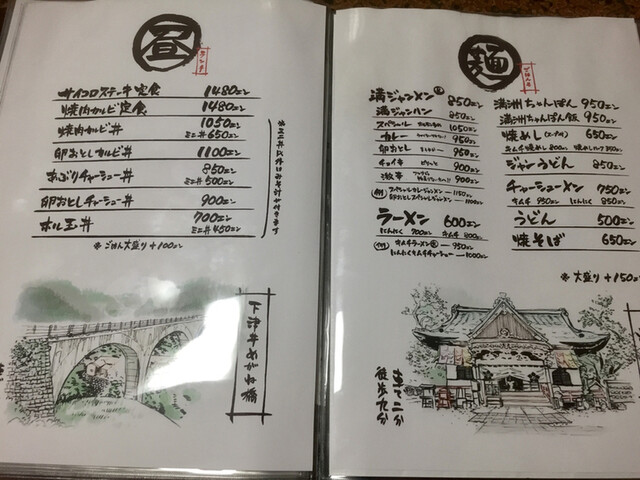 昼
ランチ
サイコロステーキ定食 1480エン
焼肉カルビ定食 1480エン
焼肉カルビ丼 1050エン
ミニ丼 650エン
卵おとしカルビ丼 1100エン
あぶりチャーシュー丼 850エン
ミニ丼 500エン
卵おとしチャーシュー丼 900エン
ホル玉丼 700エン
ミニ丼 450エン
※ごはん大盛り+100エン
麺
ごはんも
満ジャンメン 850エン
満ジャンハン 850エン
スペシャル 1050エン
カレー 950エン
卵おとし 950エン
チャイキ 900エン
激辛 900エン
ラーメン 600エン
にんにく 700エン キムチ 800エン
キムチラーメン 950エン
にんにくキムチチャーシュー 1000エン
満洲ちゃんぽん 950エン
満洲ちゃんぽん飯 950エン
焼めし(スープ付) 650エン
キムチ焼めし 800エン
ジャンうどん 850エン
チャーシューメン 750エン
キムチ 950エン にんにく 850エン
うどん 500エン
焼そば 650エン
※大盛り+150エン
徒歩九分